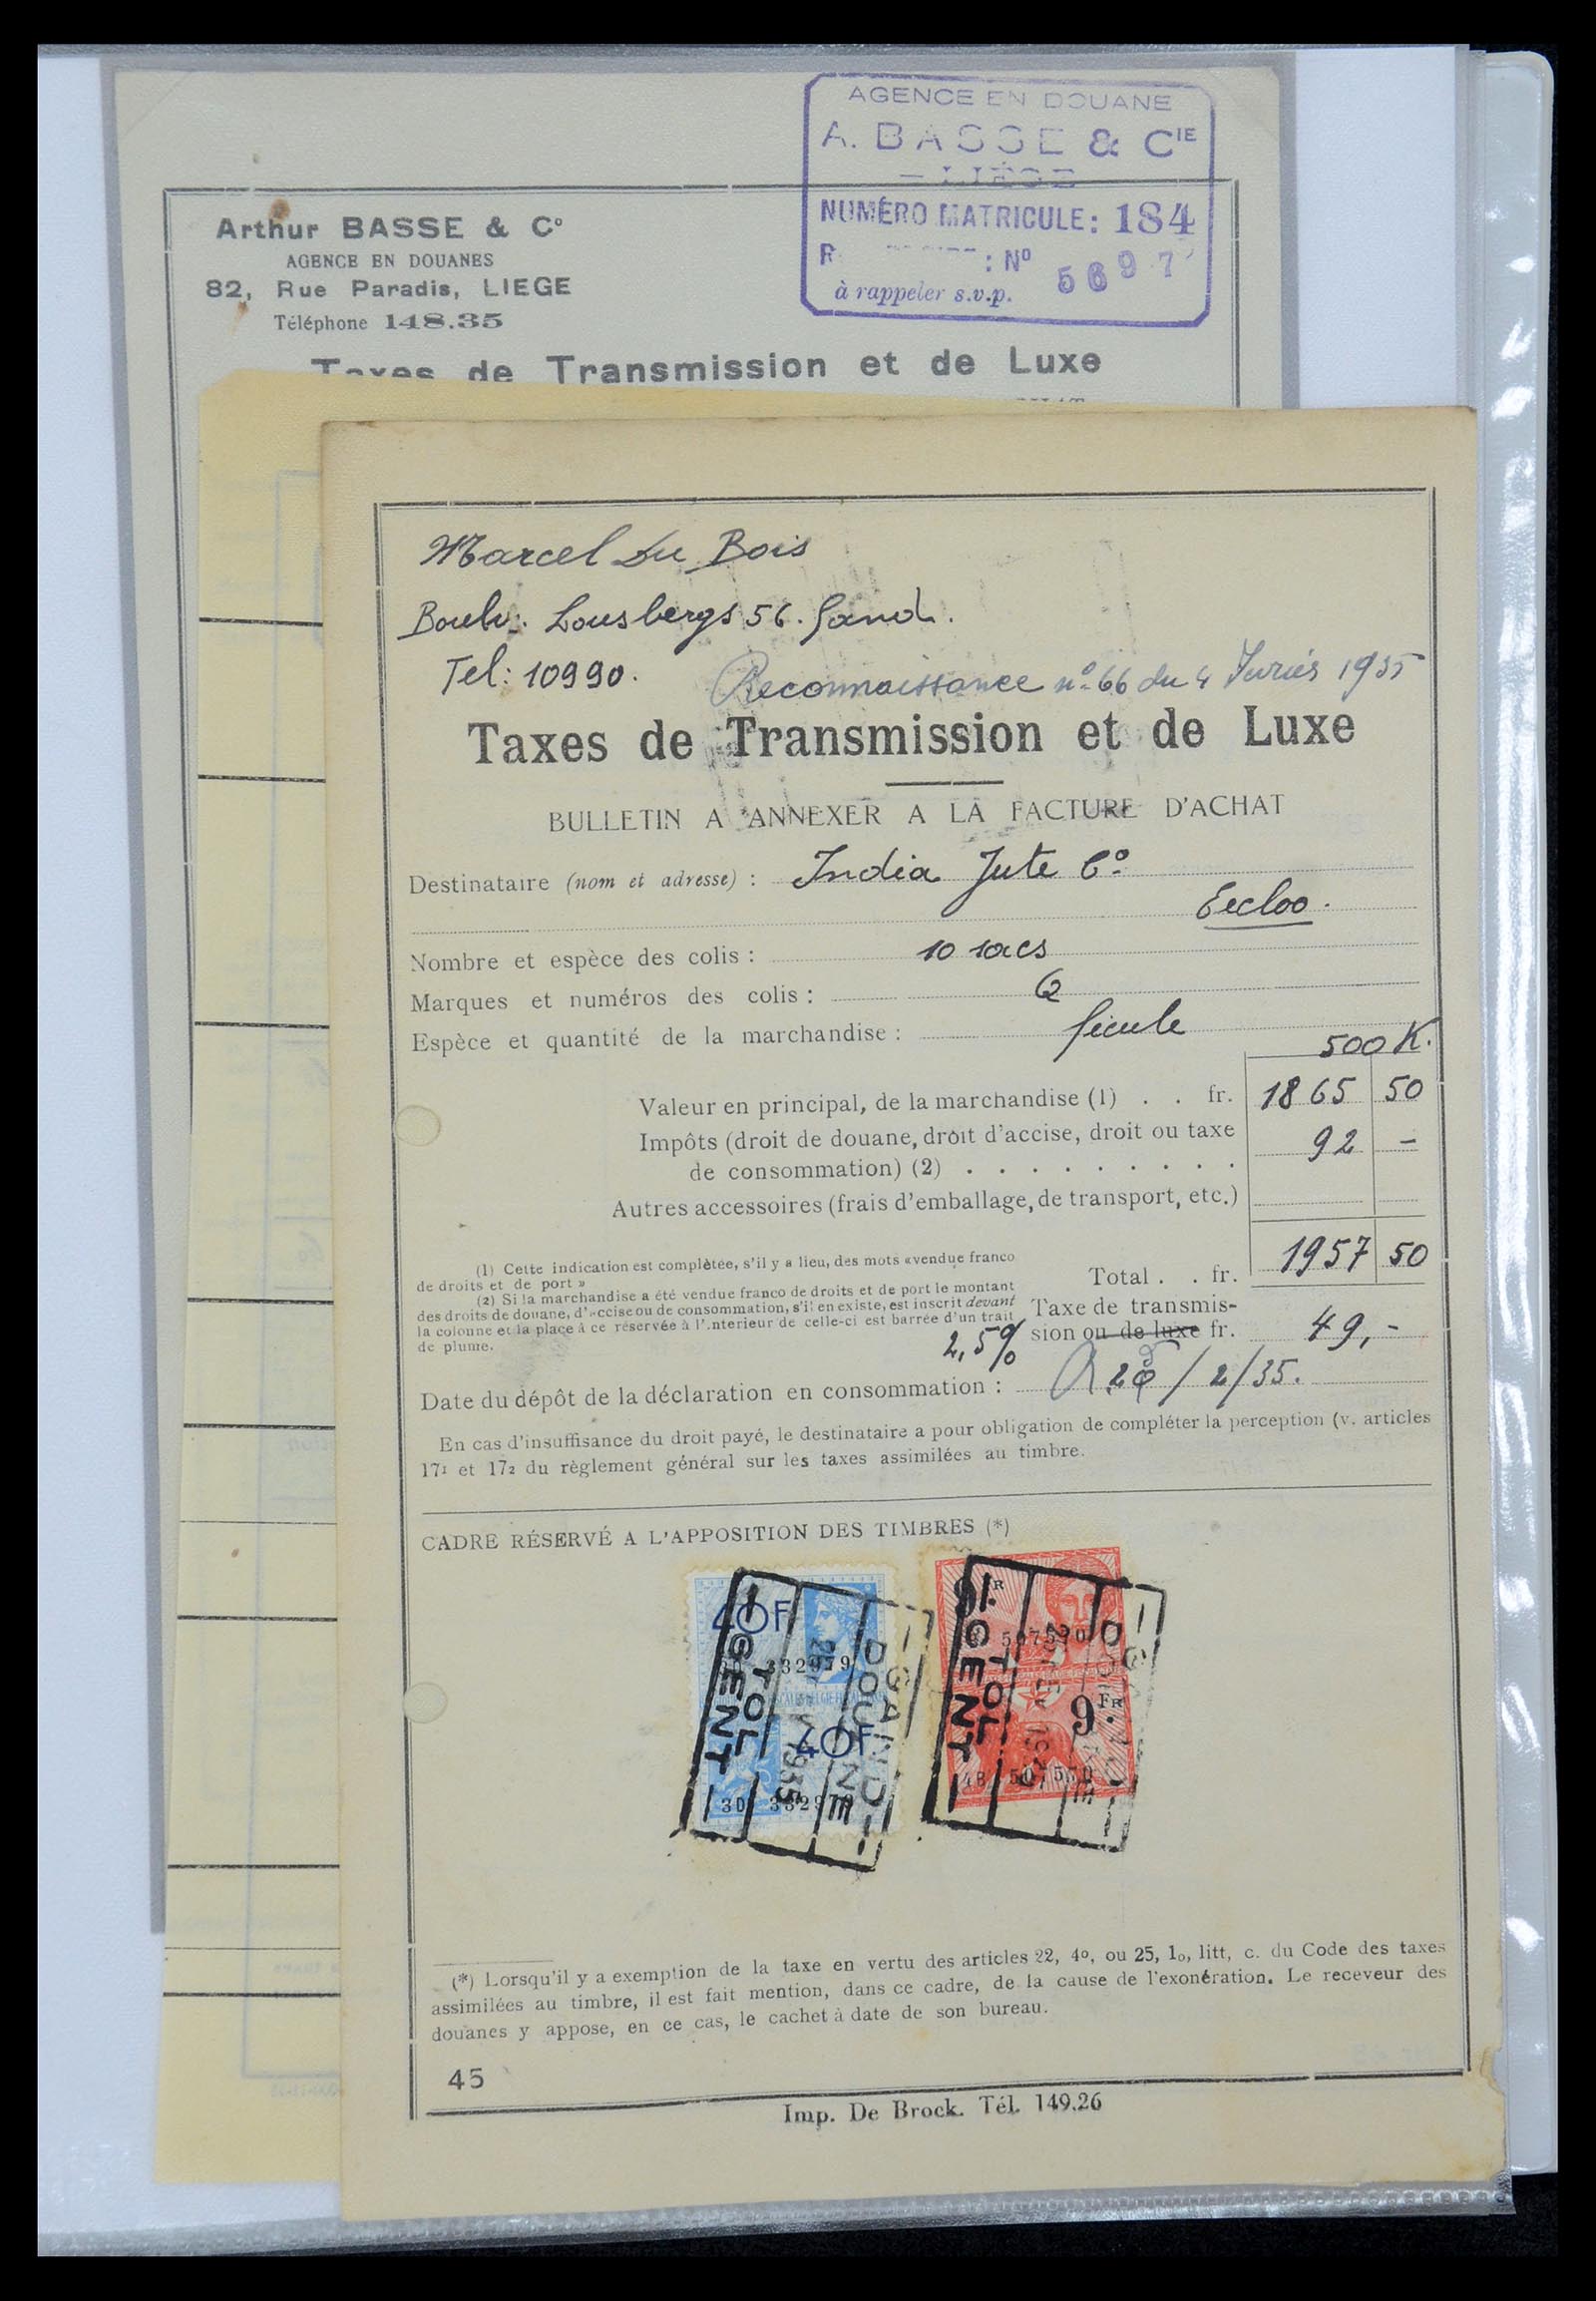 AGENCE EN DOUANE
A. BASSE & CIE
— LIÉGE
NUMÉRO MATRICULE: 184
R : Nº 5697
à rappeler s.v.p.
Arthur BASSE & Cº
AGENCE EN DOUANES
82, Rue Paradis, LIEGE
Téléphone 148.35
Taxes de Transmission et de Luxe
Marcel Du Bois
Boulv. Lousbergs 56. Gand.
Tel: 10990.
Reconnaissance nº 66 du 4 1935
Taxes de Transmission et de Luxe
BULLETIN A ANNEXER A LA FACTURE D'ACHAT
Destinataire (nom et adresse) : India Jute Cº
Eecloo.
Nombre et espèce des colis : 10 sacs
Marques et numéros des colis :
Espèce et quantité de la marchandise : fécule
500 K.
Valeur en principal, de la marchandise (1) . . fr. 1865 50
Impôts (droit de douane, droit d'accise, droit ou taxe 92 –
de consommation) (2) . . . . . . . . .
Autres accessoires (frais d'emballage, de transport, etc.)
Total . . fr. 1957 50
(1) Cette indication est complètée, s'il y a lieu, des mots «vendue franco
de droits et de port »
(2) Si la marchandise a été vendue franco de droits et de port le montant
des droits de douane, d'accise ou de consommation, s'il en existe, est inscrit devant
la colonne et la place à ce réservée à l'.nterieur de celle-ci est barrée d'un trait
de plume.
2,5%
Taxe de transmis-
sion ou de luxe fr. 49,-
Date du dépôt de la déclaration en consommation : /2/35.
En cas d'insuffisance du droit payé, le destinataire a pour obligation de compléter la perception (v. articles
171 et 172 du règlement général sur les taxes assimilées au timbre.
CADRE RÉSERVÉ A L'APPOSITION DES TIMBRES (*)
40F
332979
40F
30 332979
TOL
GENT
1935
DOUANE
GAND
9 FR
507550
9 FR.
48 507550
TOL
GENT
(*) Lorsqu'il y a exemption de la taxe en vertu des articles 22, 4o, ou 25, 1o, litt, c. du Code des taxes
assimilées au timbre, il est fait mention, dans ce cadre, de la cause de l'exonération. Le receveur des
douanes y appose, en ce cas, le cachet à date de son bureau.
45
Imp. De Brock. Tél. 149.26